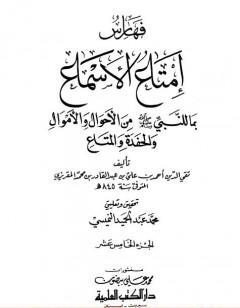 فهارس
إمتاع الأسماع
بما للنبي ﷺ من الأحوال والأموال
والحفدة والمتاع
تأليف
تقي الدين أحمد بن علي بن عبد القادر بن محمد المقريزي
المتوفى سنة ٨٤٥ هـ
تحقيق وتعليق
محمد عبد الحميد النميسي
الجزء الخامس عشر
منشورات
محمد علي بيضون
دار الكتب العلمية